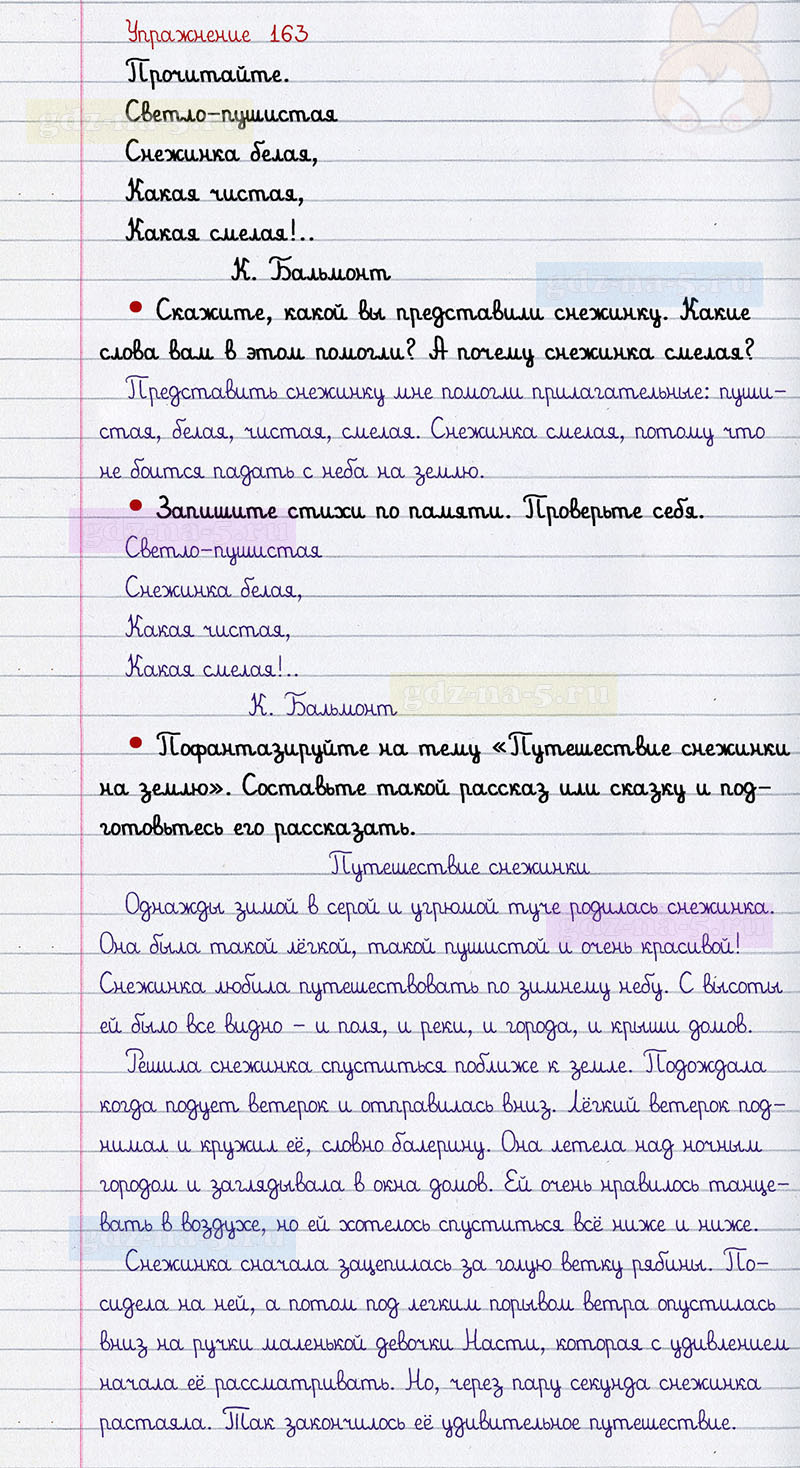 Упражнение 163
Прочитайте.
Светло-пушистая
Снежинка белая,
Какая чистая,
Какая смелая!..
К. Бальмонт
• Скажите, какой вы представили снежинку. Какие
слова вам в этом помогли? А почему снежинка смелая?
Представить снежинку мне помогли прилагательные: пуши-
стая, белая, чистая, смелая. Снежинка смелая, потому что
не боится падать с неба на землю.
• Запишите стихи по памяти. Проверьте себя.
Светло-пушистая
Снежинка белая,
Какая чистая,
Какая смелая!..
К. Бальмонт
• Пофантазируйте на тему «Путешествие снежинки
на землю». Составьте такой рассказ или сказку и под-
готовьтесь его рассказать.
Путешествие снежинки
Однажды зимой в серой и угрюмой туче родилась снежинка.
Она была такой лёгкой, такой пушистой и очень красивой!
Снежинка любила путешествовать по зимнему небу. С высоты
ей было все видно – и поля, и реки, и города, и крыши домов.
Решила снежинка спуститься поближе к земле. Подождала
когда подует ветерок и отправилась вниз. Лёгкий ветерок под-
нимал и кружил её, словно балерину. Она летела над ночным
городом и заглядывала в окна домов. Ей очень нравилось танце-
вать в воздухе, но ей хотелось спуститься всё ниже и ниже.
Снежинка сначала зацепилась за голую ветку рябины. По-
сидела на ней, а потом под легким порывом ветра опустилась
вниз на ручки маленькой девочки Насти, которая с удивлением
начала её рассматривать. Но, через пару секунда снежинка
растаяла. Так закончилось её удивительное путешествие.
gdz-na-5.ru
gdz-na-5.ru
gdz-na-5.ru
gdz-na-5.ru
gdz-na-5.ru
gdz-na-5.ru